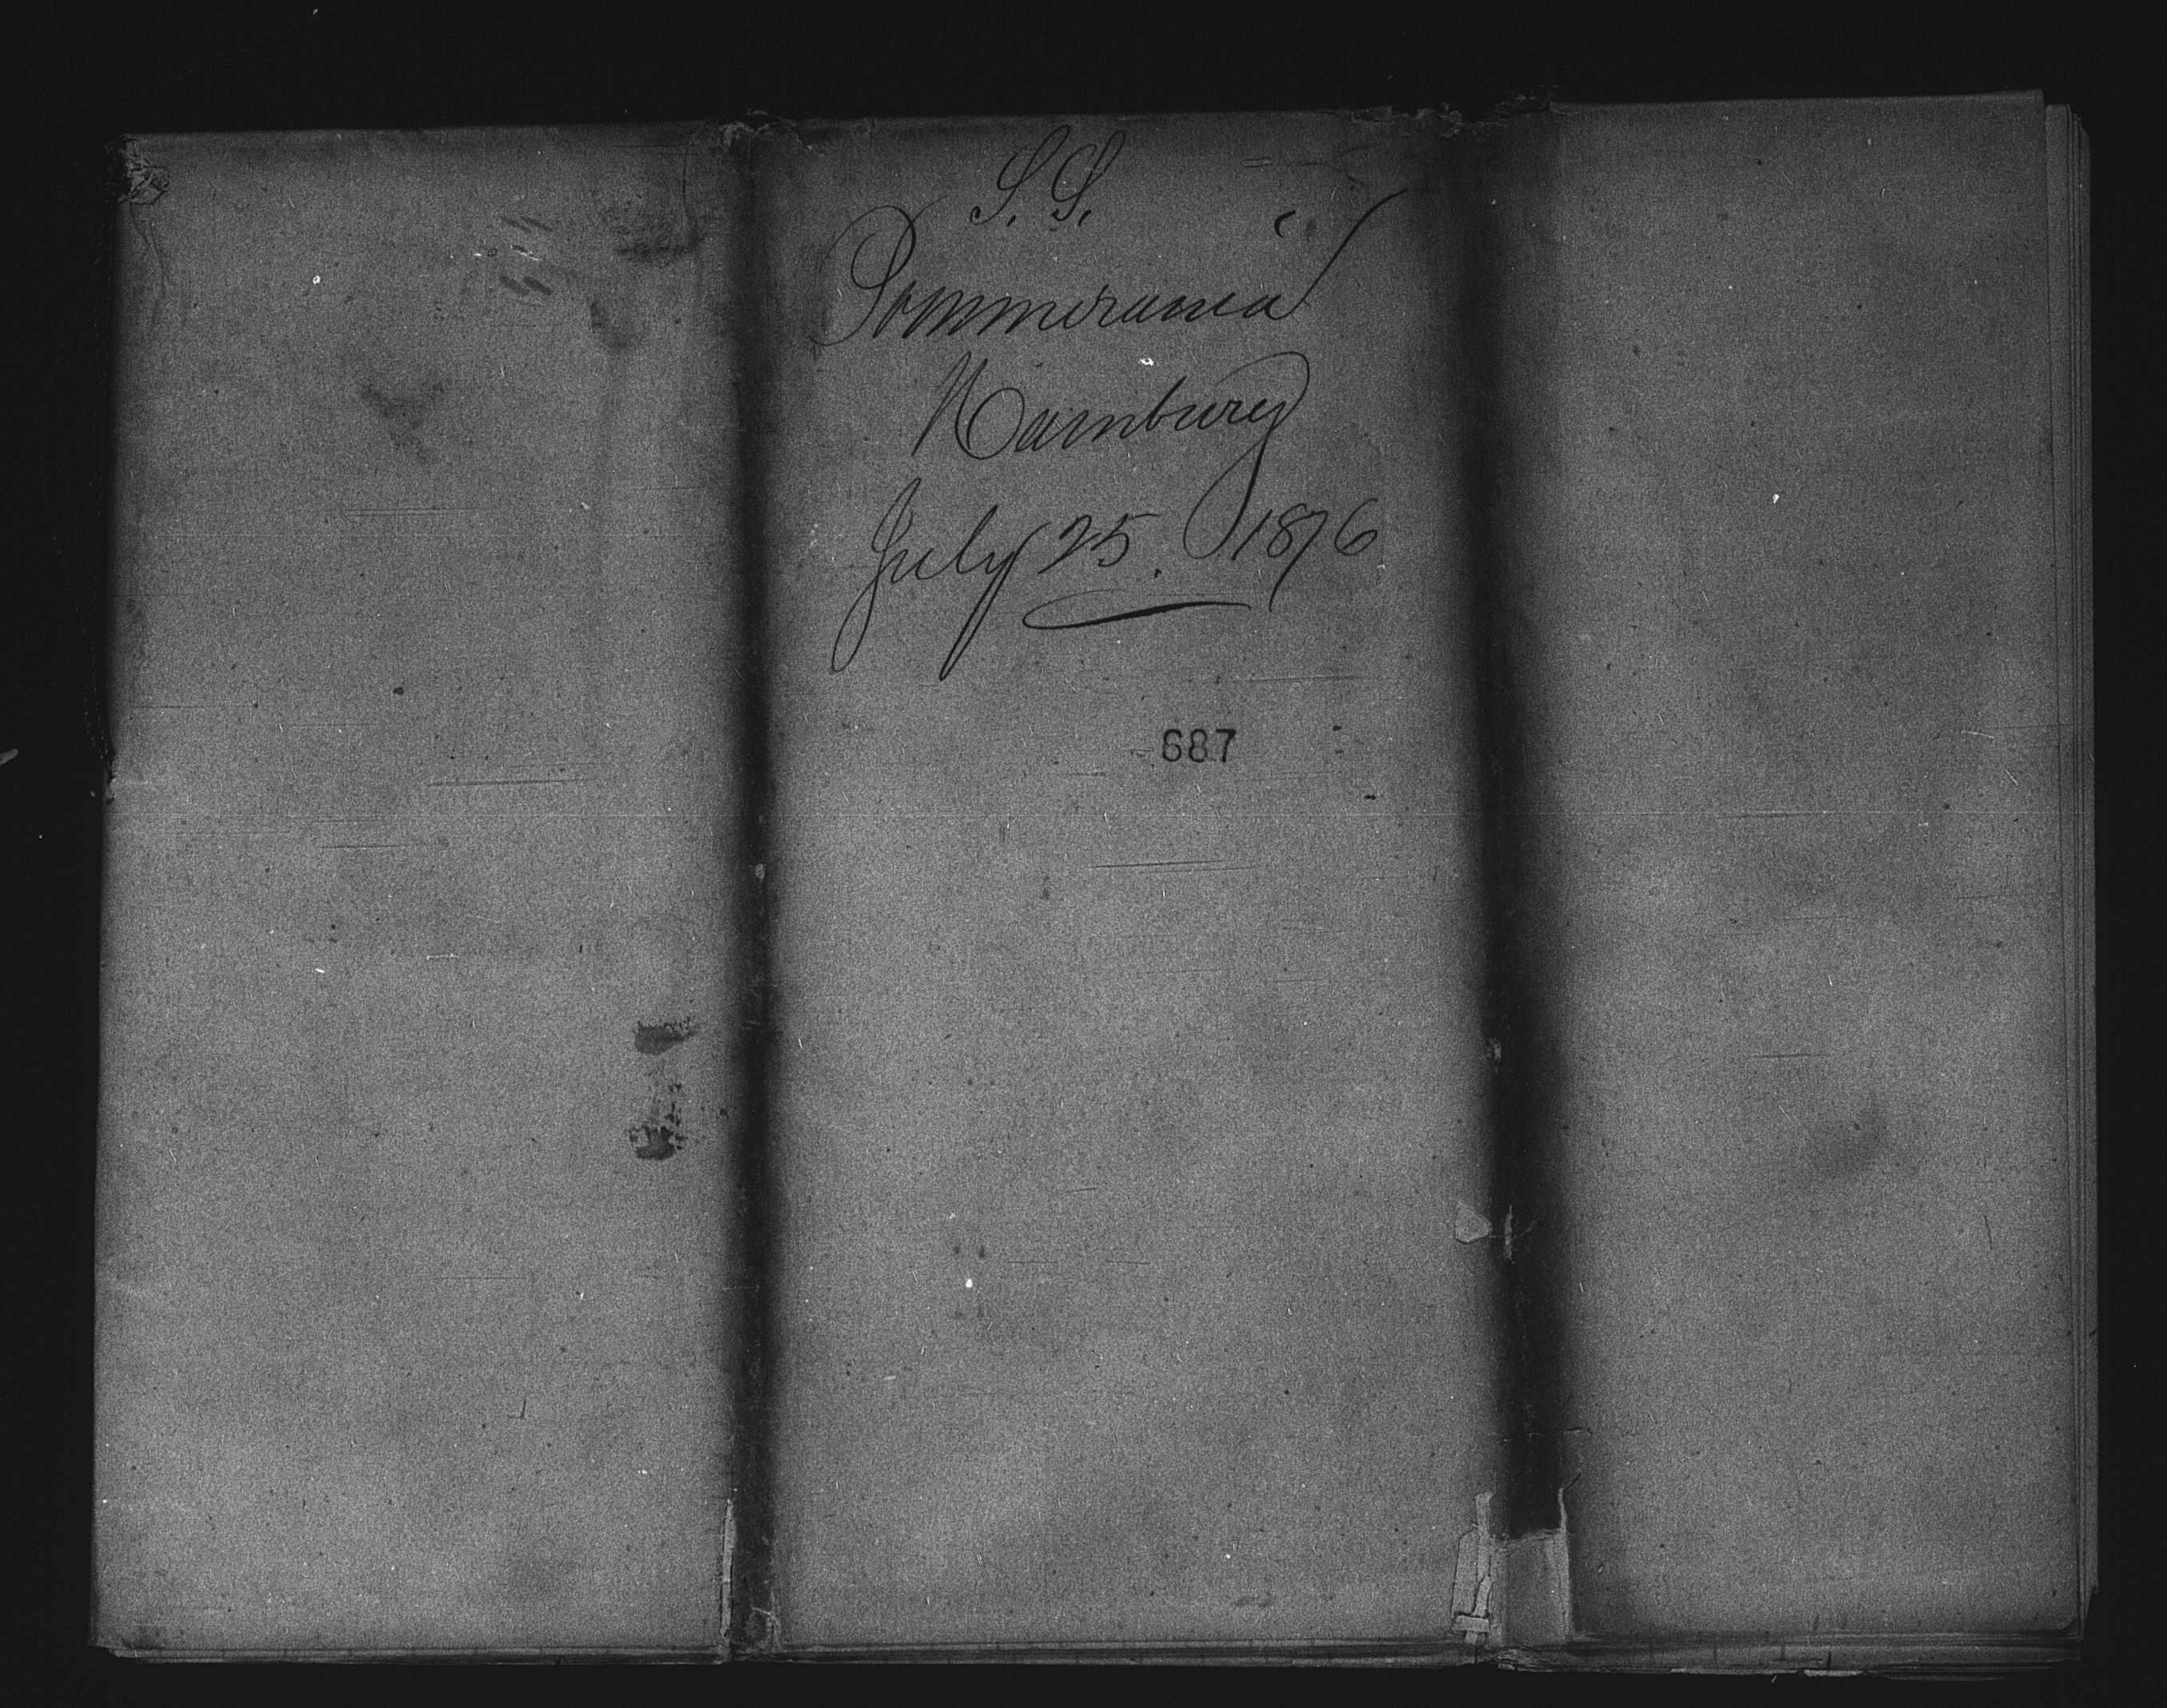 S. S.
Pommerania
Hamburg
July 25. 1876
687